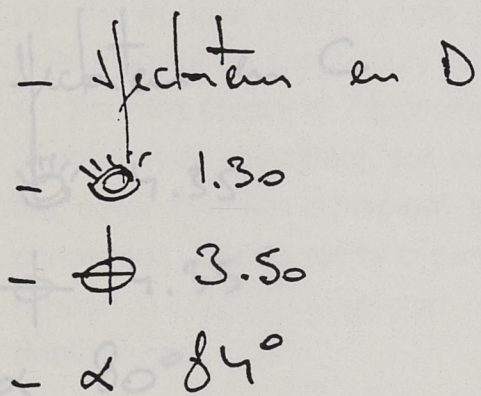 - Spectateur en D
- 1.30
- 3.50
- α 84°